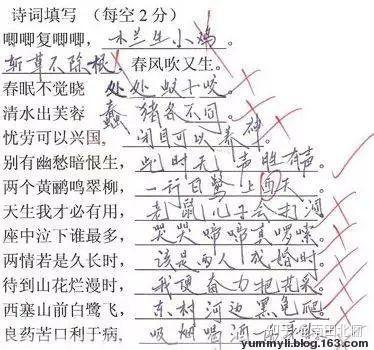 诗词填写 （每空2分）
唧唧复唧唧，木兰生小鸡。
斩草不除根，春风吹又生。
春眠不觉晓 处处蚊子咬。
清水出芙蓉 蠢猪各不同。
忧劳可以兴国，闭目可以养神
别有幽愁暗恨生，此时无声胜有声
两个黄鹂鸣翠柳，一行白鹭上西天。
天生我才必有用，老鼠儿子会打洞
座中泣下谁最多，哭哭啼啼真啰嗦。
两情若是久长时，该是两人成婚时。
待到山花烂漫时，我便奋力把花采。
西塞山前白鹭飞，东村河边黑龟爬。
良药苦口利于病，吸烟喝酒
知乎
yummyli.blog.163.com